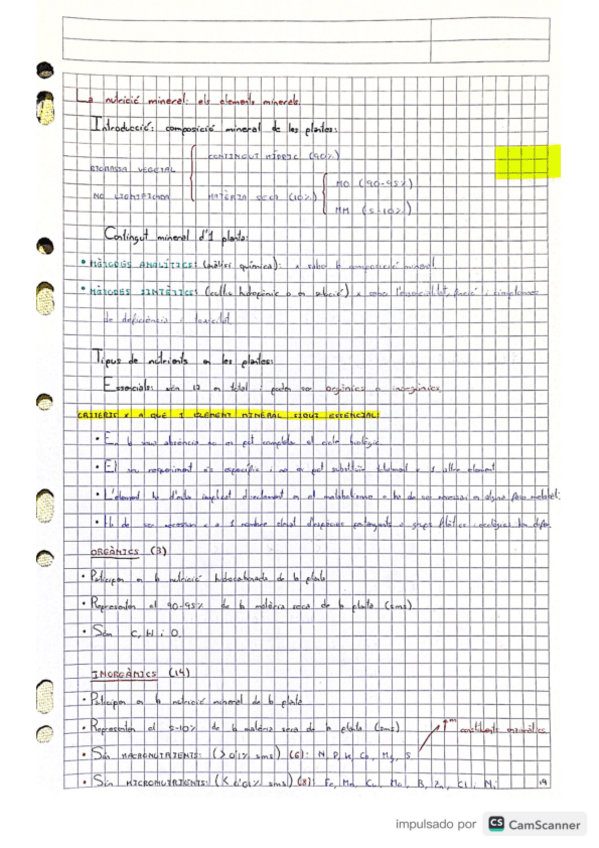 La nutrició mineral: els elements minerals
Introducció: composició mineral de les plantes:
CONTINGUT HÍDRIC (90%)
BIOMASSA VEGETAL
MO (90-95%)
NO LIGNIFICADA
MATÈRIA SECA (10%)
MM (5-10%)
Contingut mineral d'1 planta:
• MÈTODES ANALÍTICS: (anàlisis química): x saber la composició mineral
• MÈTODES SINTÈTICS: (cultiu hidropònic o en solució) x saber l'essencialitat, funció i símptomes
de deficiència i toxicitat.
Tipus de nutrients en les plantes:
Essencials: són 17 en total i poden ser orgànics o inorgànics.
CRITERIS x A QUÈ 1 ELEMENT MINERAL SIGUI ESSENCIAL:
• En la seva absència no es pot completar el cicle biològic.
• El seu requeriment és específic i no es pot substituir totalment x 1 altre element
• L'element ha d'estar implicat directament en el metabolisme o ha de ser necessari en alguna fase metabol:
• Ha de ser necessari x a 1 nombre elevat d'espècies
ORGÀNICS (3)
• Participen en la nutrició hidrocarbonada de la planta
• Representen el 90-95% de la matèria seca de la planta (sms)
• Són C, H i O.
INORGÀNICS (14)
• Participen en la nutrició mineral de la planta
• Representen el 5-10% de la matèria seca de la planta (sms)
constituents enzimàtics
• Són MACRONUTRIENTS: (>0'1% sms) (6): N, P, K, Ca, Mg, S
• Són MICRONUTRIENTS: (<0'01% sms) (8): Fe, Mn, Cu, Mo, B, Zn, Cl, Ni
impulsado por CS CamScanner